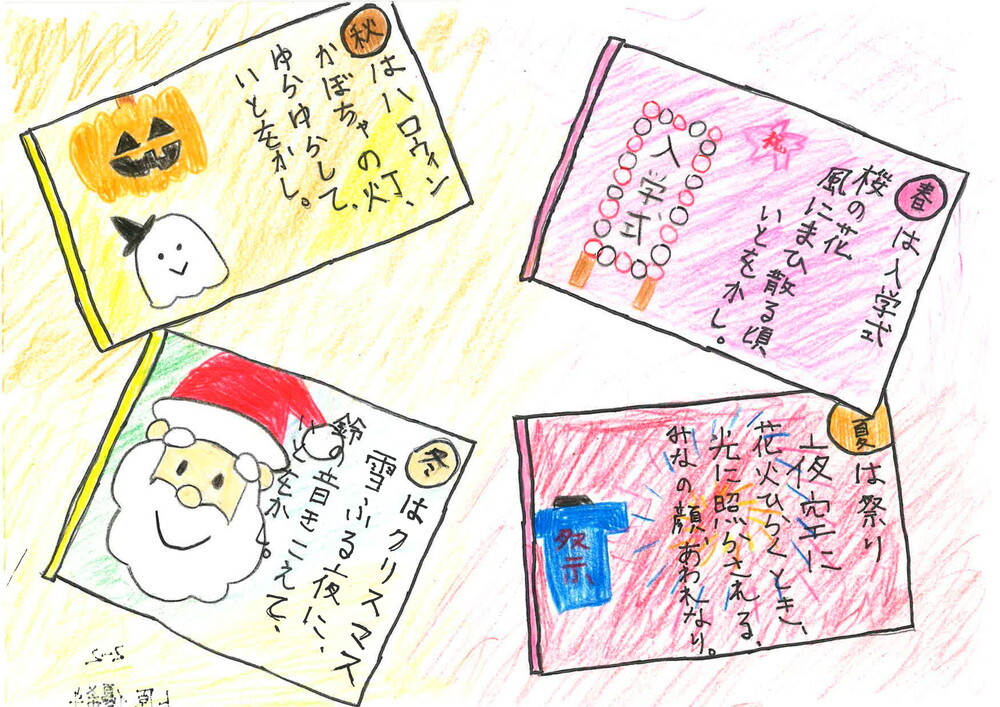 春は入学式
桜の花
風にまひ散る頃、
いとをかし。
祝
入学式
夏は祭り
夜空に
花火ひらくとき、
光に照らされる、
みなの顔、あわれなり。
祭
秋はハロウィン
かぼちゃの灯、
ゆらゆらして、
いとをかし。
冬はクリスマス
雪ふる夜に、
鈴の音きこえて、
いとをかし。